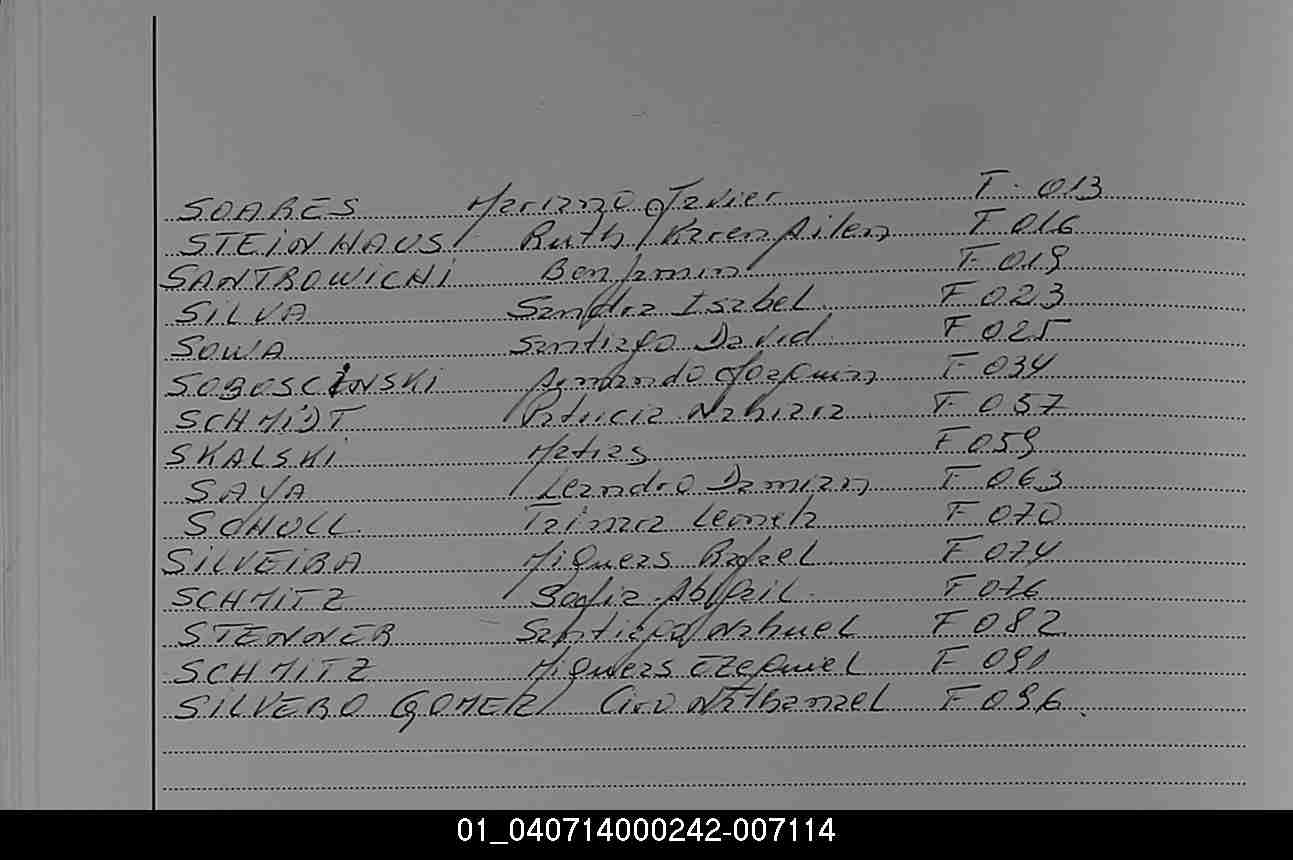 SOARES Mariano Javier F. 013
STEINHAUS Ruth Karen Ailen F 016
SANTROWICHI Benjamin F 019
SILVA Sandra Isabel. F 023
SOWA Santiago David. F 025
SOBOSCINSKI Armando Joaquin F 034
SCHMIDT Patricia Nahiara F 057
SKALSKI Matias F 059
SAYA Leandro Damian F 063
SCHOLL. Leonela F 070
SILVEIRA Miqueas Rafael F 074
SCHMITZ Sofia Abigail. F 076
STENNER Santiago Nahuel F 082
SCHMITZ Miqueas Ezequiel F 091
SILVERO GOMEZ Ciro Nathanael F 096.
01_040714000242-007114